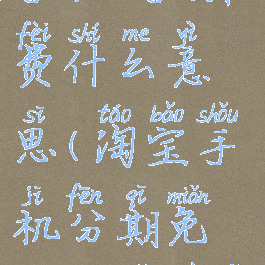 fèi shí me yì
费什么意
sī táo bǎo shǒu
思(淘宝手
jī fēn qī miǎn
机分期免